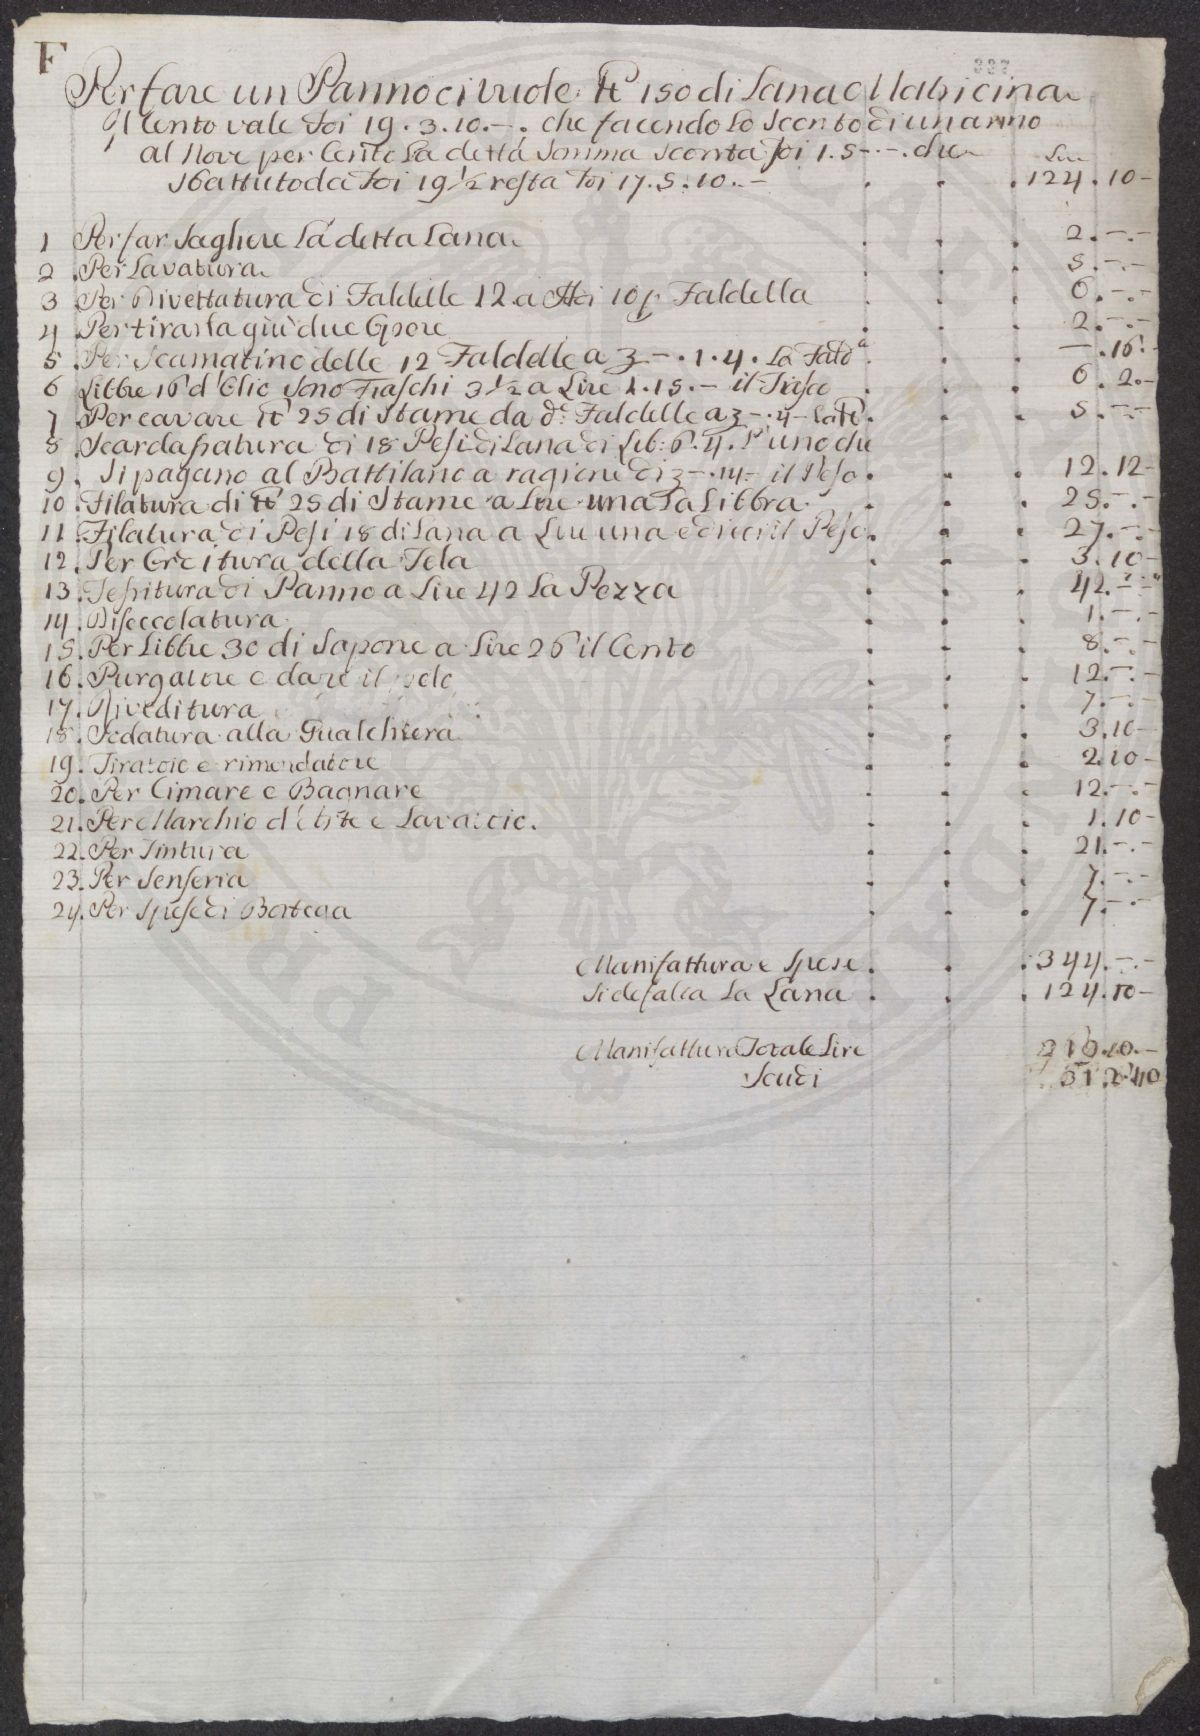 F
337
Per fare un Panno ci vuole ℔ 150 di Lana Matricina
Il Cento vale Δi 19.3.10.-. che facendo lo Sconto di un anno
al Nove per Cento La detta Somma Sconta Δi 1.5.-.-. che Lire
Sbattuto da Δi 19 ½ resta Δi 17.5.10.- 124.10-
1 Per far Sagliere La detta Lana 2.-.-
2 Per Lavatura 5.-.-
3 Per Divettatura di Faldelle 12 a 10 p Faldella 6.-.-
4 Per tirarla giù due Opere 2.-.-
5 Per Scamatino delle 12 Faldelle a £ -.1.4. La Falda -.16.-
6 Libbre 16 d'Olio Sono Fiaschi 3 ½ a Lire 1.15.- il Fiasco 6.2.-
7 Per cavare ℔ 25 di Stame da d.e Faldelle a £ -.4- La ℔ 5.-.-
8 Scardassatura di 18 Pesi di Lana di Lib: 6.4. l'uno che
9. Si pagano al Battilano a ragione di £ -.14- il Peso 12.12-
10. Filatura di ℔ 25 di Stame a Lire una La Libbra 25.-.-
11. Filatura di Pesi 18 di Lana a Lire una e dieci il Peso 27.-.-
12. Per Orditura della Tela 3.10-
13. Tessitura di Panno a Lire 42 La Pezza 42.-.-
14. Diseccolatura 1.-.-
15. Per Libbre 30 di Sapone a Lire 26 il Cento 8.-.-
16. Purgatore e dare il pelo 12.-.-
17. Riveditura 7.-.-
18. Sodatura alla Gualchiera 3.10-
19. Tiratoio e rimendatore 2.10-
20. Per Cimare e Bagnare 12.-.-
21. Per Marchio d'Arte e Lavatoio. 1.10-
22. Per Tintura 21.-.-
23. Per Senseria 7.-.-
24. Per Spese di Bottega 7.-.-
Manifattura e Spese 344.-.-
Si defalca La Lana 124.10-
Manifattura Totale Lire 219.10.-
Scudi 31.2.10